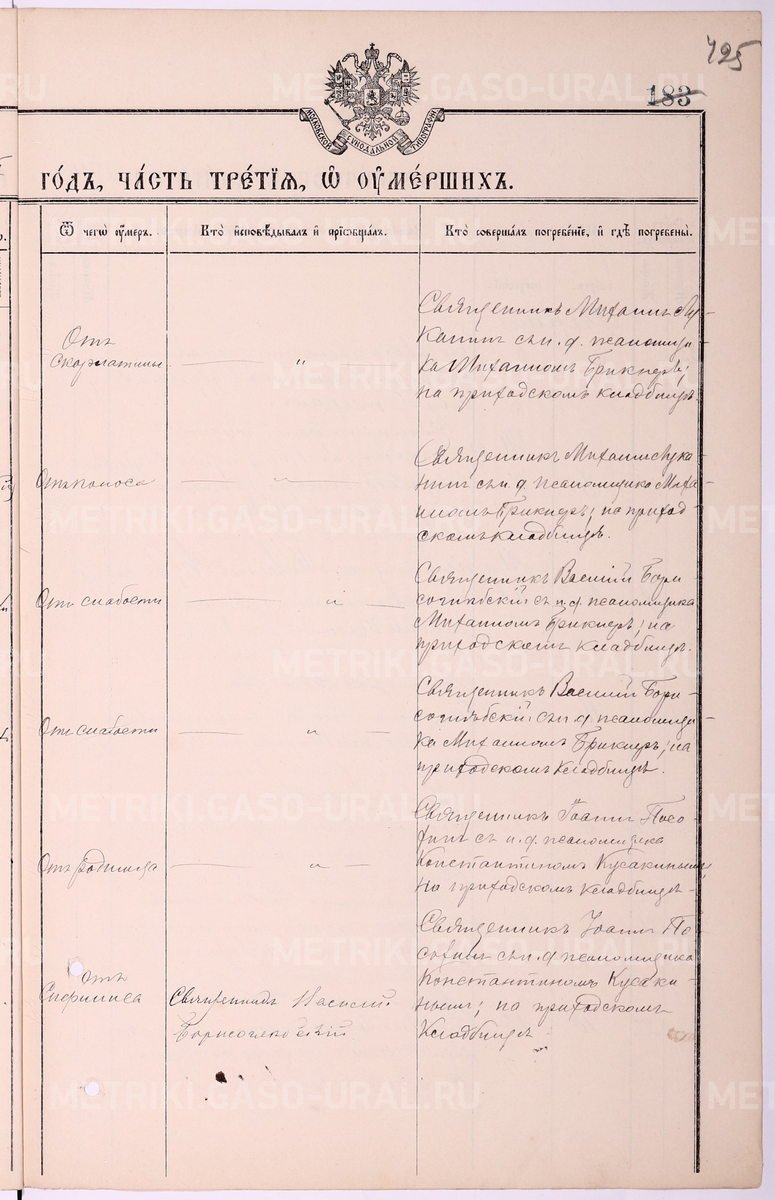 425
183
МОСКОВСКОЙ СѴНОДАЛЬНОЙ ТИПОГРАФІИ
ГО́ДЪ, ЧА́СТЬ ТРЕ́ТІѦ, Ѡ҆ ОУ҆МЕ́РШИХЪ.
Ѿ чегѡ̀ оу҆́меръ.
Кто̀ и҆сповѣ́дывалъ и҆ пріѡбща́лъ.
Кто̀ соверша́лъ погребе́ніе, и҆ гдѣ̀ погребены̀.
Отъ
скорлатины
— " —
Священникъ Михаилъ Лу-
канинъ съ и. д. псаломщи-
ка Михаиломъ Брикнеръ;
на приходскомъ кладбищѣ.
Отъ поноса
— " —
Священникъ Михаилъ Лука-
нинъ съ и. д. псаломщика Миха-
иломъ Брикнеръ; на приход-
скомъ кладбищѣ.
Отъ слабости
— " —
Священникъ Василій Бори-
соглѣбскій съ и. д. псаломщика
Михаиломъ Брикнеръ; на
приходскомъ кладбищѣ.
Отъ слабости
— " —
Священникъ Василій Бори-
соглѣбскій съ и. д. псаломщи-
ка Михаиломъ Брикнеръ; на
приходскомъ кладбищѣ.
Отъ родимца
— " —
Священникъ Іоаннъ
съ и. д. псаломщика
Константиномъ Кусакинымъ;
на приходскомъ кладбищѣ
Отъ
Сифилиса
Священникъ Василій
Борисоглѣбскій
Священникъ Іоаннъ
съ и. д. псаломщика
Константиномъ Кусаки-
нымъ; на приходскомъ
кладбищѣ
METRIKI.GASO-URAL.RU